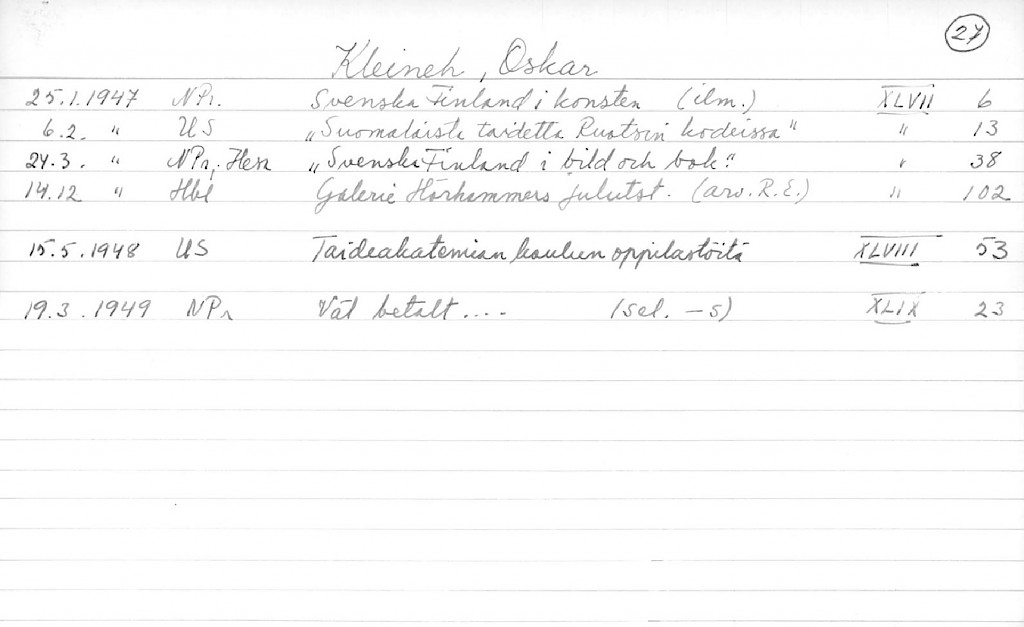 27
Kleineh, Oskar
25.1.1947 NPr. Svenska Finland i konsten (ilm.) XLVII 6
6.2. " US "Suomalaista taidetta Ruotsin kodeissa" " 13
24.3. " NPr; Hesa "Svenska Finland i bild och bok" " 38
14.12 " Hbl Galerie Hörhammers julutst. (arv. R.E.) " 102
15.5.1948 US Taideakatemian koulun oppilastöitä XLVIII 53
19.3.1949 NPr Väl betalt.... (sel. -s) XLIX 23